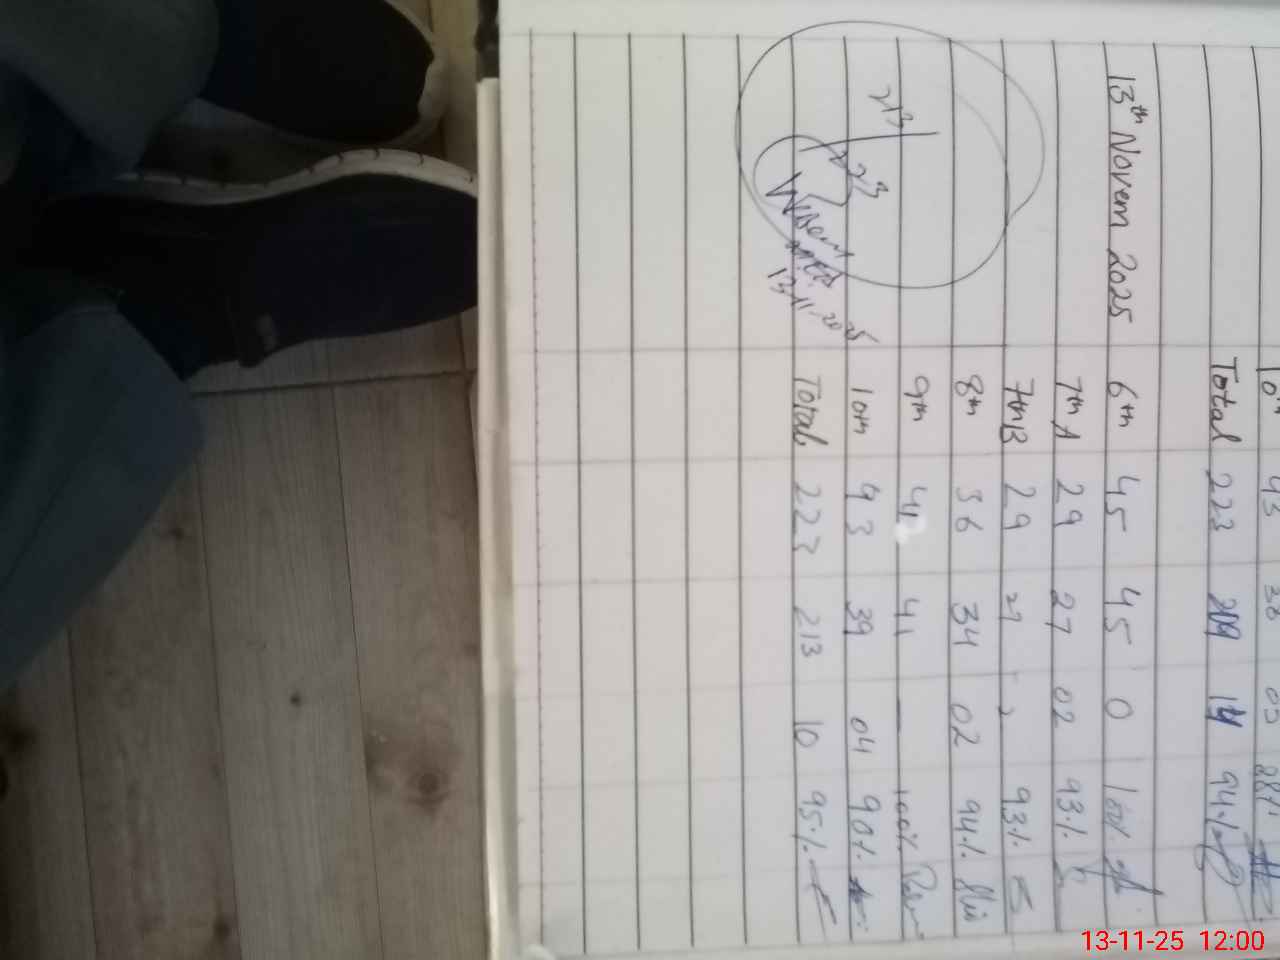 10th 43 38 05 88%
Total 223 209 14 94%
13th Novem 2025 6th 45 45 0 100%
7th A 29 27 02 93%
7th B 29 27 2 93%
8th 36 34 02 94%
9th 41 41 — 100%
10th 43 39 04 90%
Total 223 213 10 95%
213
223
13.11.2025
13-11-25 12:00